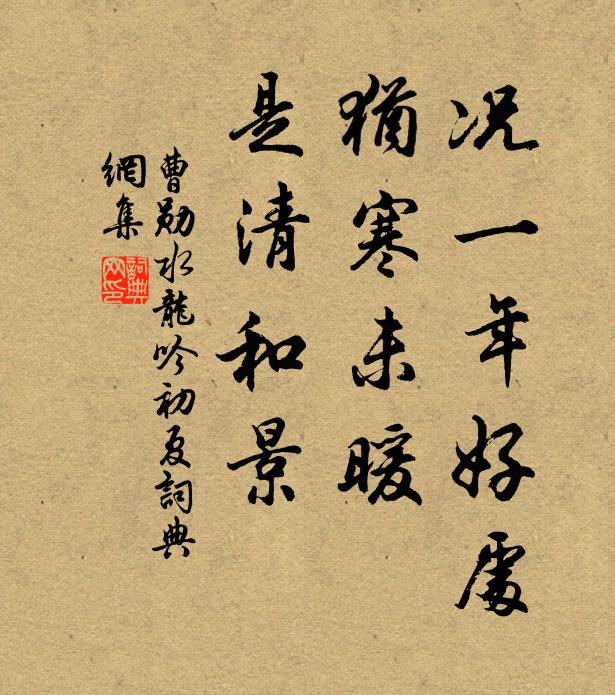 况一年好處
猶寒未暖
是清和景
曹勛水龍吟初夏詞典
網集
詞典
网印